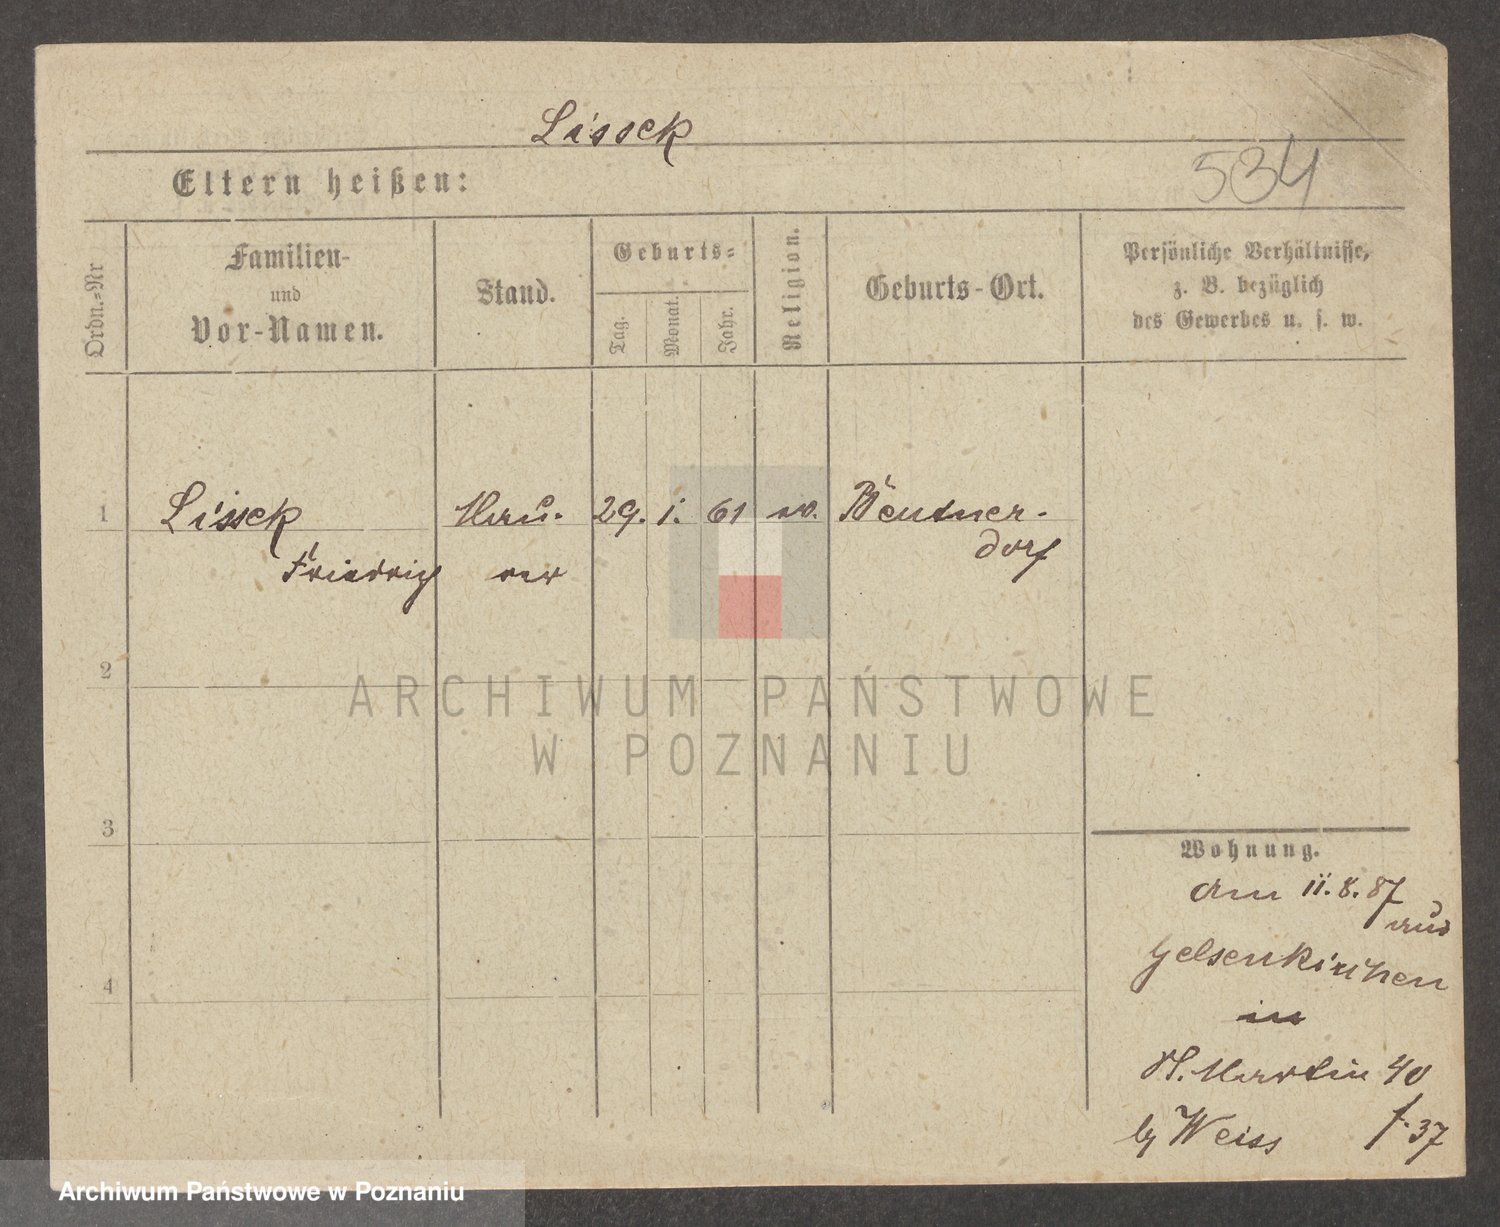 Lissek
Eltern heißen:
534
Ordn.=Nr
Familien-
und
Vor-Namen.
Stand.
Geburts=
Tag.
Monat.
Jahr.
Religion.
Geburts-Ort.
Persönliche Verhältnisse,
z. B. bezüglich
des Gewerbes u. s. w.
1 Lissek Mau- 29. i. 61 ev. Beutner-
Friedrich rer dorf
2
ARCHIWUM PAŃSTWOWE
W POZNANIU
3
Wohnung.
am 11.8.87
aus
Gelsenkirchen
4
in
St. Martin 40
by Weiss f. 37
Archiwum Państwowe w Poznaniu